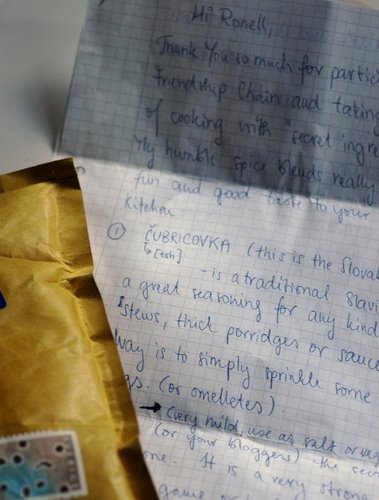 Hi Ronell,
Thank You so much for partici
Friendship Chain and taking
of cooking with "secret ingre
My humble spice blends really
fun and good taste to your
kitchen:
① ČUBRICOVKA (this is the Slova
↳ [tch]
- is a traditional Slavi
a great seasoning for any kind
stews, thick porridges or sauce
way is to simply sprinkle some
gs. (or omelletes)
→ (very mild, use as salt or veg
(or your bloggers) the sec
one. It is a very strong
game